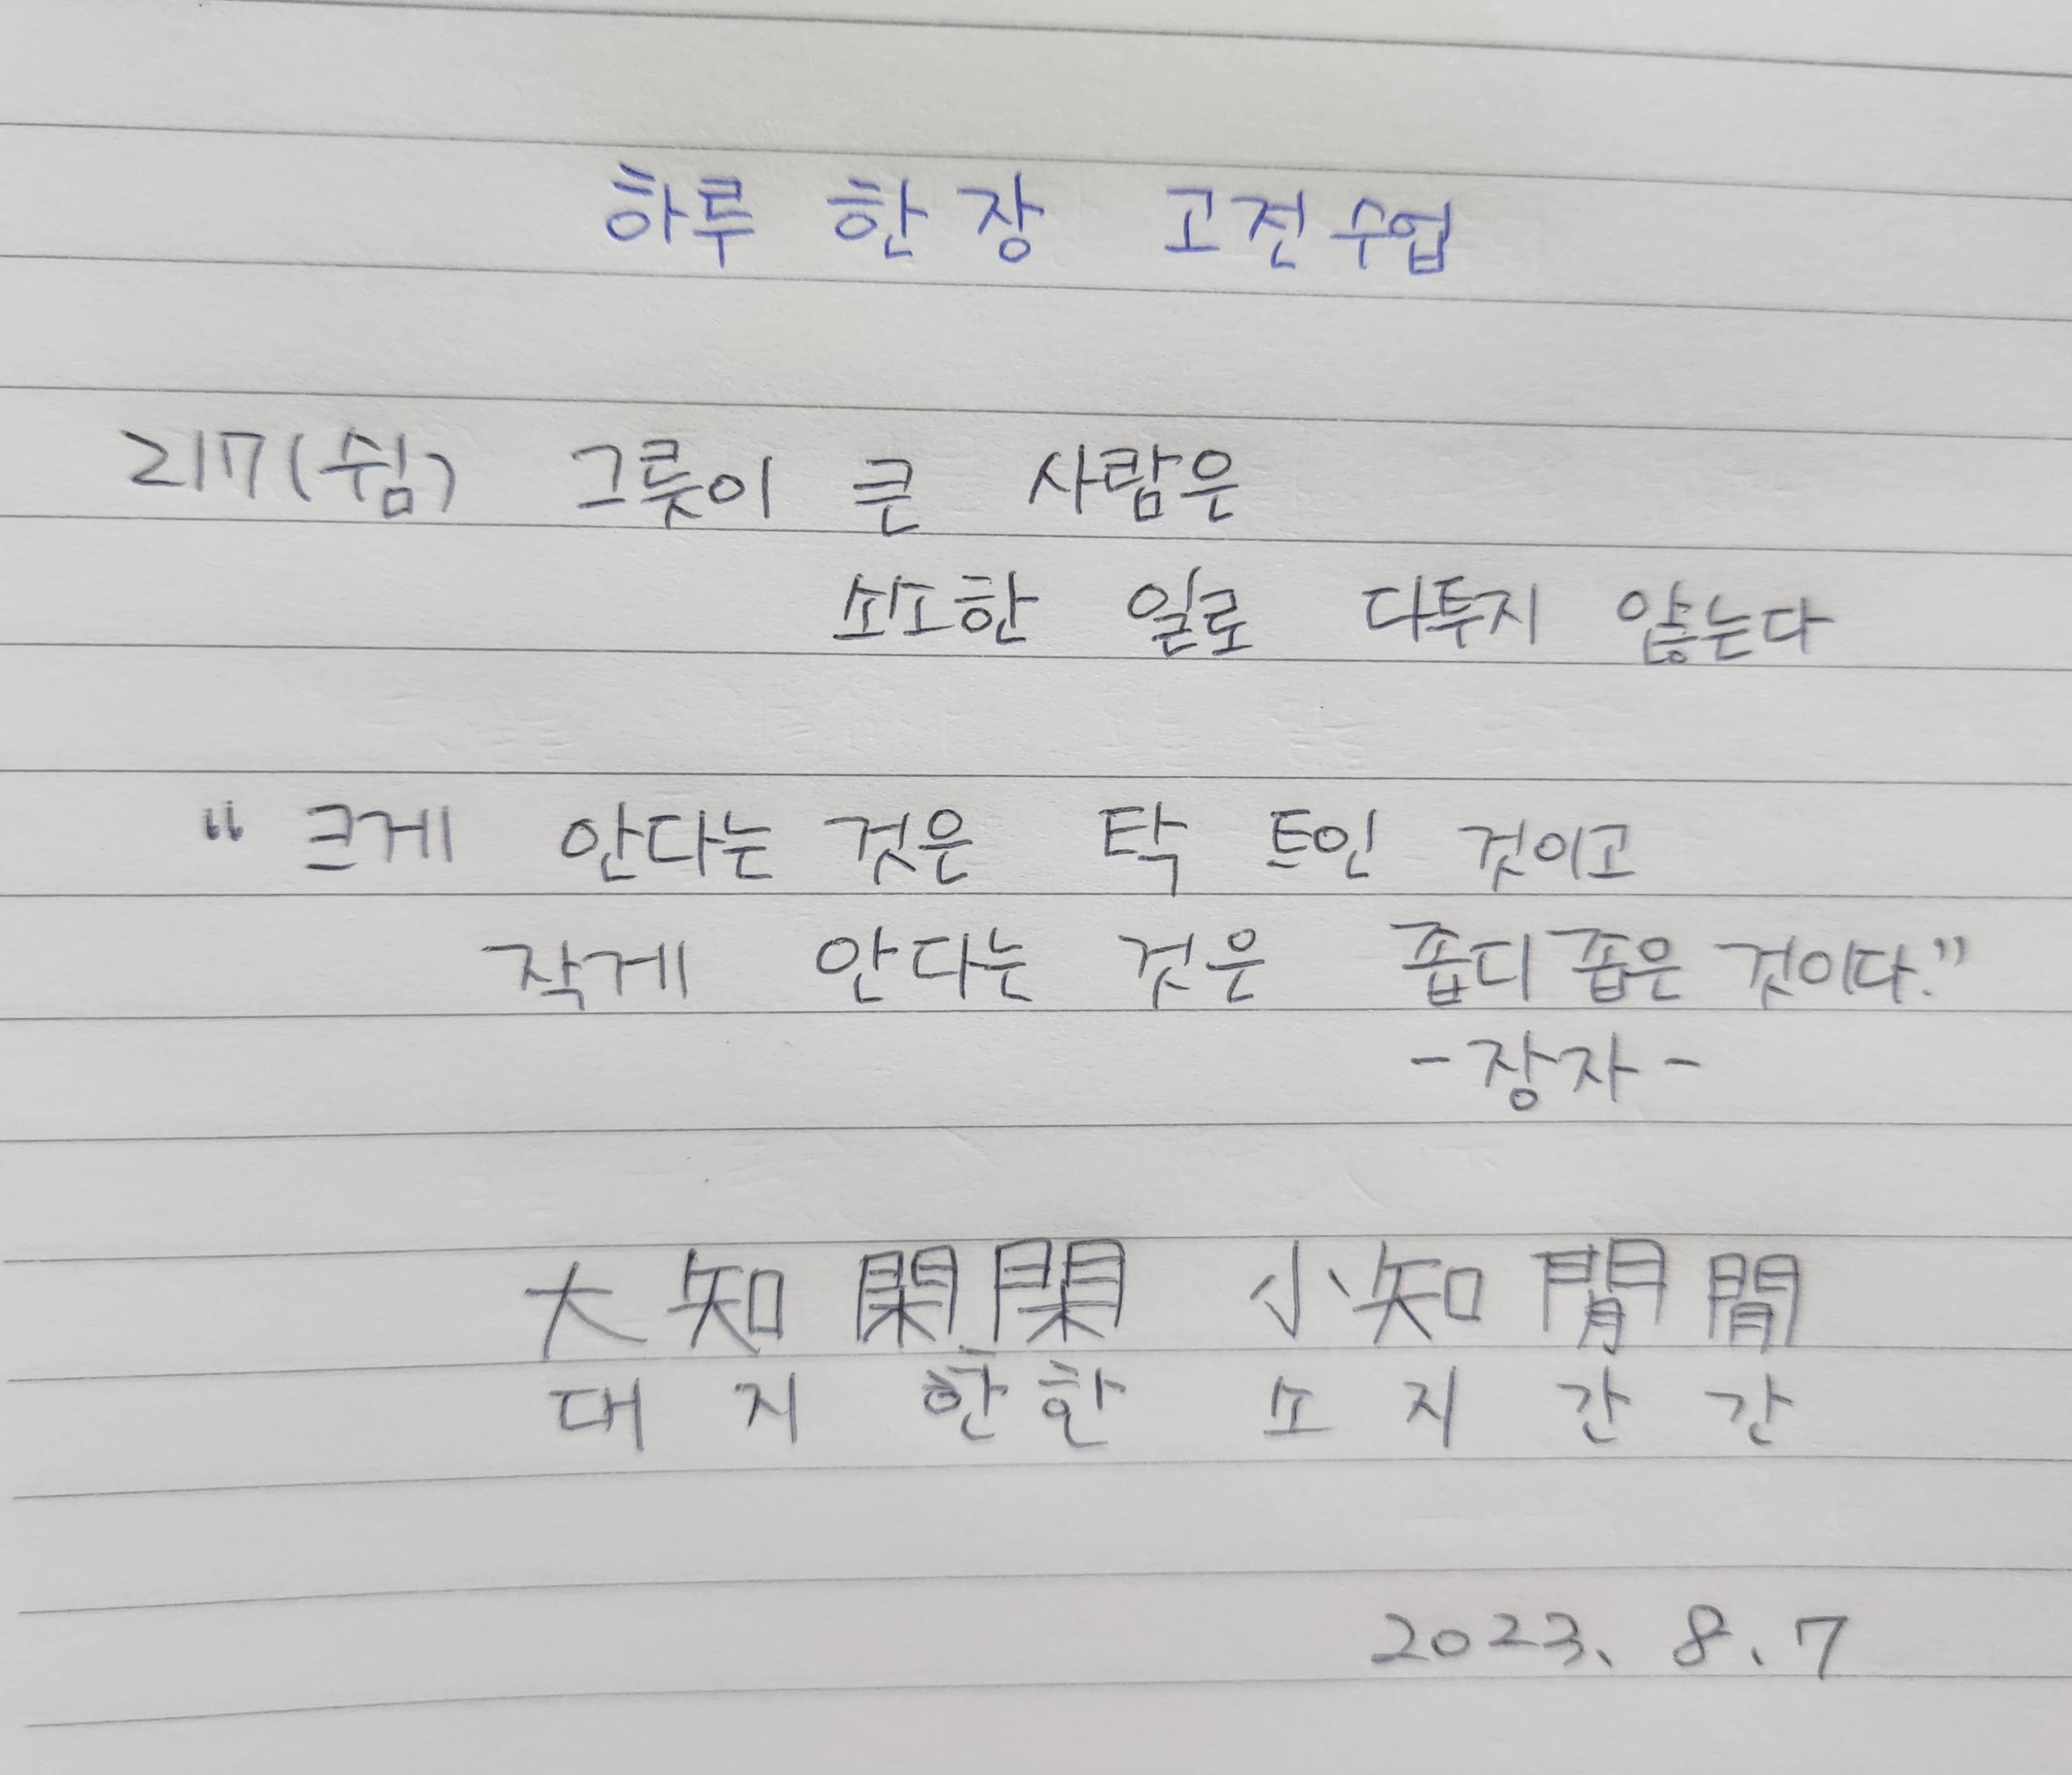 하루 한 장 고전수업
217(쉼) 그릇이 큰 사람은
쇠소한 일로 다투지 않는다
“크게 안다는 것은 탁 트인 것이고
작게 안다는 것은 좁디 좁은 것이다.”
-장자-
大知閑閑 小知閒閒
대지한한 소지간간
2023. 8. 7